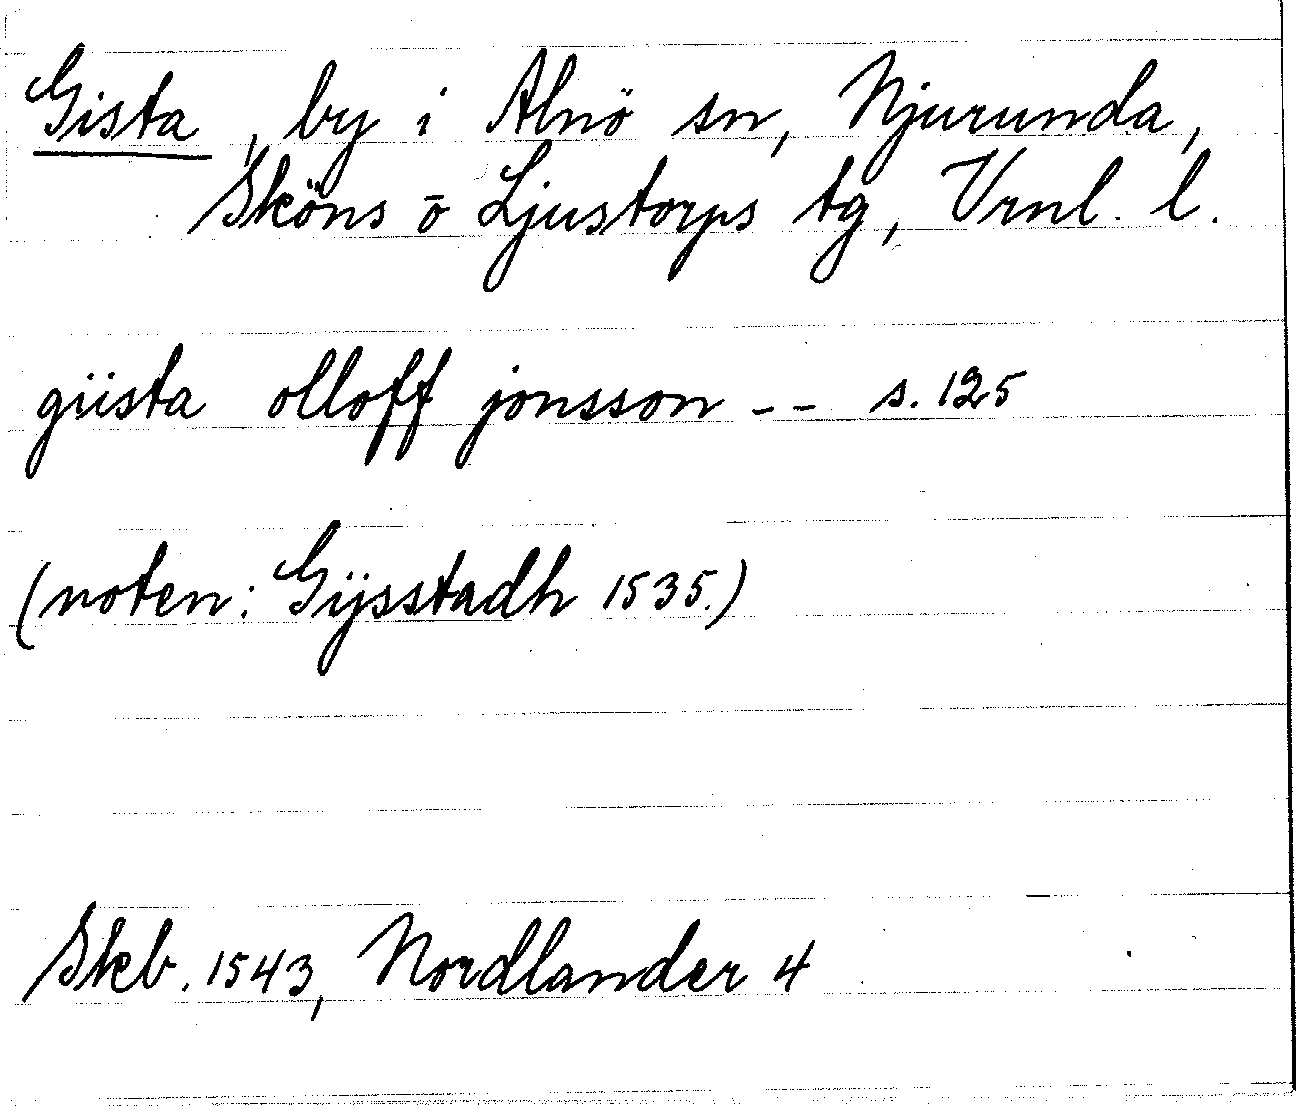 Gista, by i Alnö sn, Njurunda,
Sköns o Ljustorps tg, Vrnl. l.
giista olloff jonsson -- s. 125
(noten: Gijsstadh 1535.)
Skb. 1543, Nordlander 4